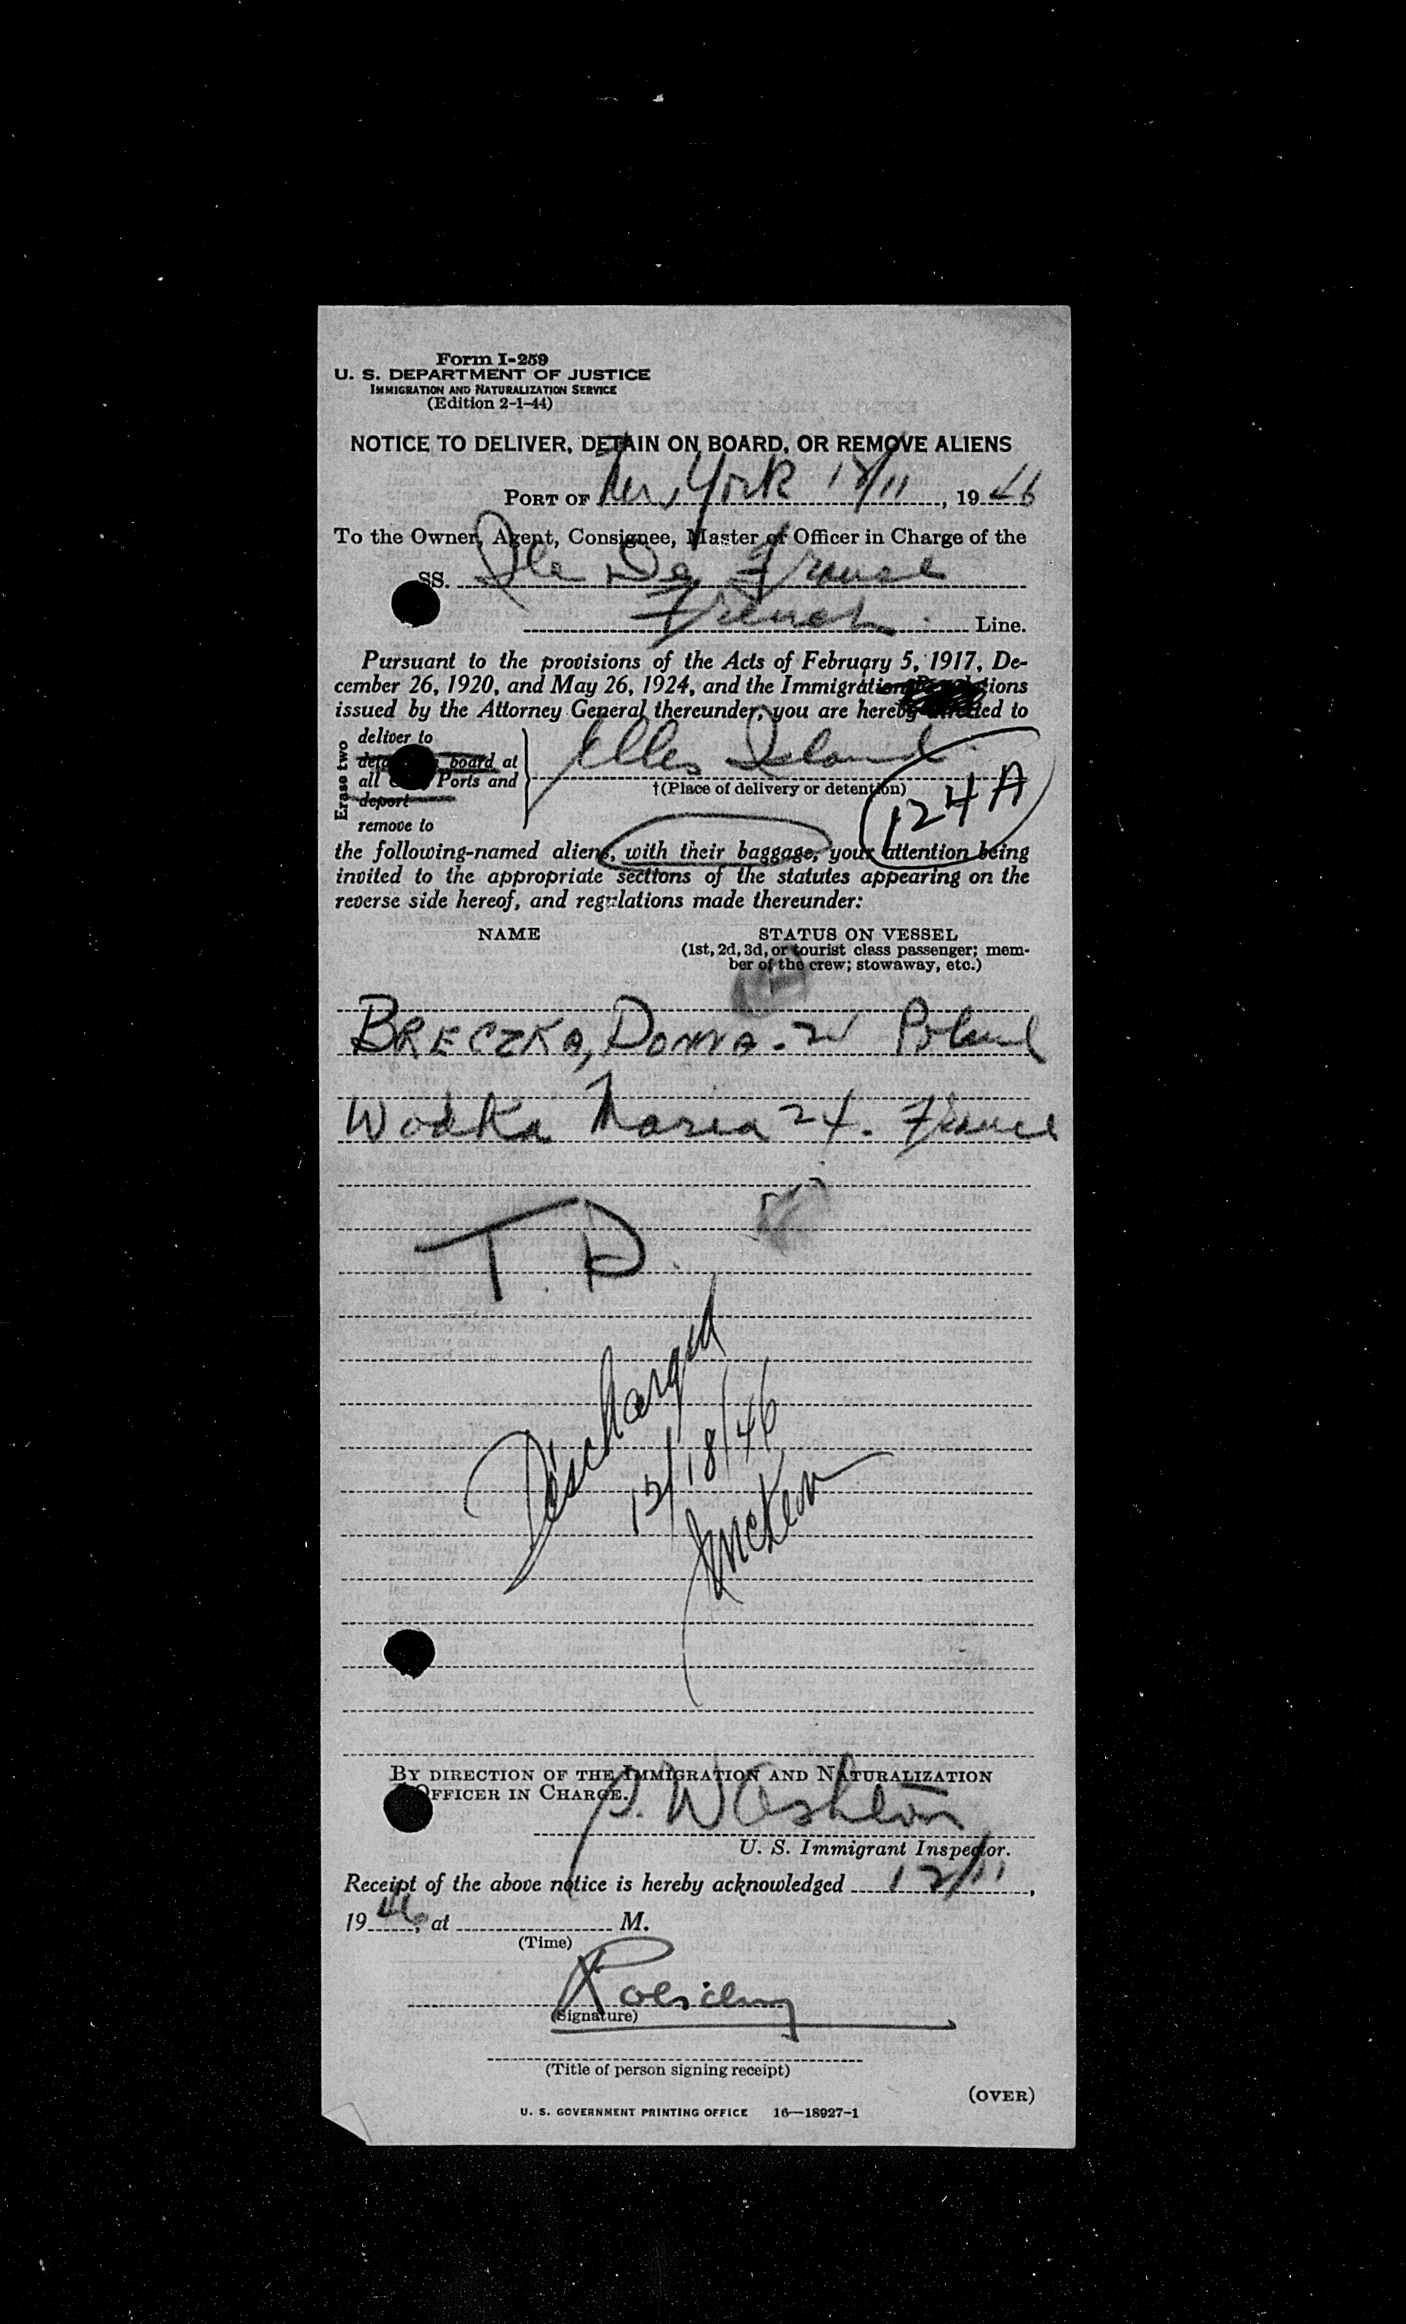 Form I-259
U. S. DEPARTMENT OF JUSTICE
IMMIGRATION AND NATURALIZATION SERVICE
(Edition 2-1-44)
NOTICE TO DELIVER, DETAIN ON BOARD, OR REMOVE ALIENS
PORT OF New York 12/11, 19 46
To the Owner, Agent, Consignee, Master or Officer in Charge of the
SS. Ile De France
French Line.
Pursuant to the provisions of the Acts of February 5, 1917, De-
cember 26, 1920, and May 26, 1924, and the Immigration
issued by the Attorney General thereunder, you are hereby directed to
Erase two
deliver to
board at
all Ports and
deport
remove to
Ellis Island
†(Place of delivery or detention)
124A
the following-named aliens, with their baggage, your attention being
invited to the appropriate sections of the statutes appearing on the
reverse side hereof, and regulations made thereunder:
NAME STATUS ON VESSEL
(1st, 2d, 3d, or tourist class passenger; mem-
ber of the crew; stowaway, etc.)
BRECZKA, DONNA - Poland
Wodka Maria 24. France
T. D.
Discharged
12/18/46
McKeon
BY DIRECTION OF THE IMMIGRATION AND NATURALIZATION
OFFICER IN CHARGE.
Washton
U. S. Immigrant Inspector.
Receipt of the above notice is hereby acknowledged 12/11,
19 46, at M.
(Time)
(Signature)
(Title of person signing receipt)
(OVER)
U. S. GOVERNMENT PRINTING OFFICE 16—18927-1